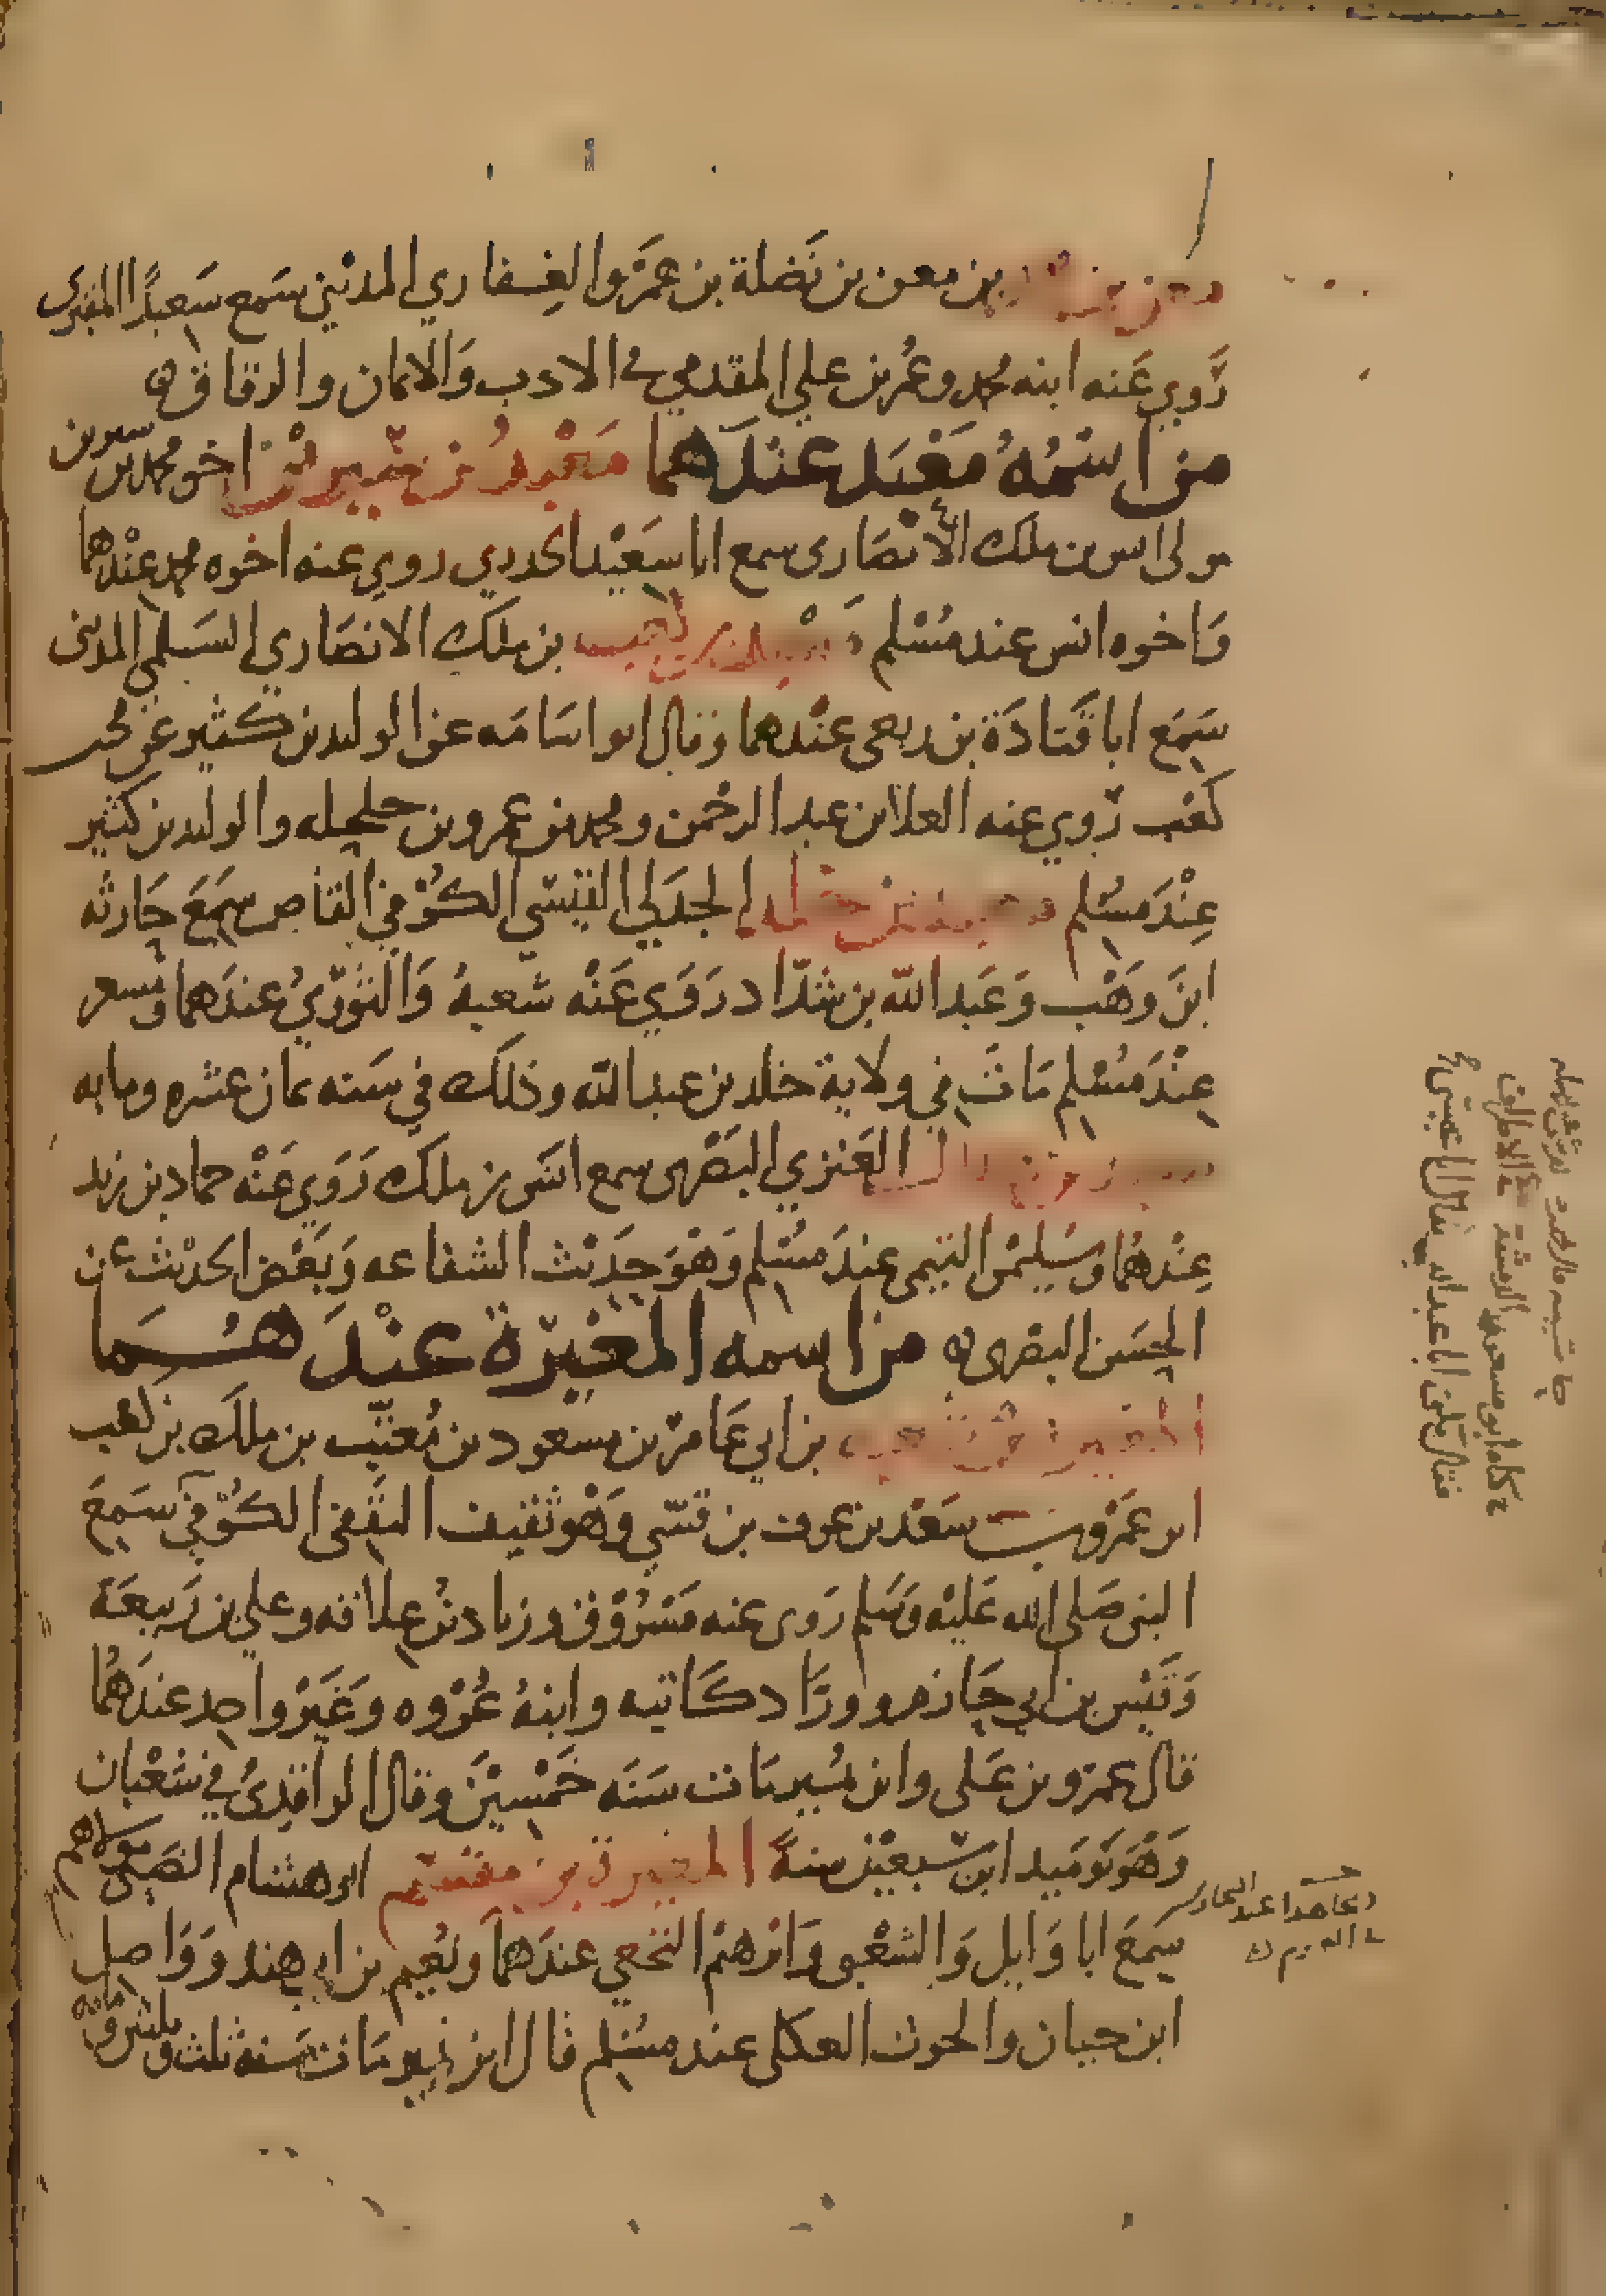 معن بن محمد بن معن بن نضلة بن عمرو الغفاري المديني سمع سعيدا المقبري
روي عنه ابنه محمد وعمر بن علي المقدمي في الادب والايمان والرقاق
من اسمه معبد عندهما معبد بن سيرين اخو محمد بن سيرين
مولى انس بن ملك الانصاري سمع ابا سعيد الخدري روي عنه اخوه محمد عندهما
واخوه انس عند مسلم معبد بن كعب بن ملك الانصاري السلمي المدني
سمع ابا قتادة بن ربعي عندهما وقال ابو اسامه عن الوليد بن كثير عن محمد بن
كعب روي عنه العلا بن عبد الرحمن ومحمد بن عمرو بن حلحله والوليد بن كثير
عند مسلم معبد بن خالد الجدلي القيسي الكوفي القاص سمع حارثه
ابن وهب وعبد الله بن شداد روي عنه شعبة والثوري عندهما ومسعر
عند مسلم مات في ولاية خلد بن عبد الله وذلك في سنه ثمان عشره ومايه
معبد بن هلال العنزي البصري سمع انس بن ملك روي عنه حماد بن زيد
عندهما وسليمن التيمي عند مسلم وهو حديث الشفاعه وبعض الحديث عن
الحسن البصري من اسمه المغيرة عندهما
المغيرة بن شعبه بن ابي عامر بن مسعود بن معتب بن ملك بن كعب
ابن عمرو بن سعد بن عوف بن قسي وهو ثقيف الثقفي الكوفي سمع
النبي صلى الله عليه وسلم روى عنه مسروق وزياد بن علاقه وعلي بن ربيعة
وقيس بن ابي حازم ووراد كاتبه وابنه عروه وغير واحد عندهما
قال عمرو بن علي وابن نمير مات سنه خمسين وقال الواقدي في شعبان
وهو يوميد ابن سبعين سنة المغيرة بن مقسم ابو هشام الضبي مولاهم
سمع ابا وايل والشعبي وابرهيم النخعي عندهما ونعيم بن ابي هند وواصل
ابن حيان والحرث العكلي عند مسلم قال ابن نمير مات سنة ثلث وثلثين ومايه